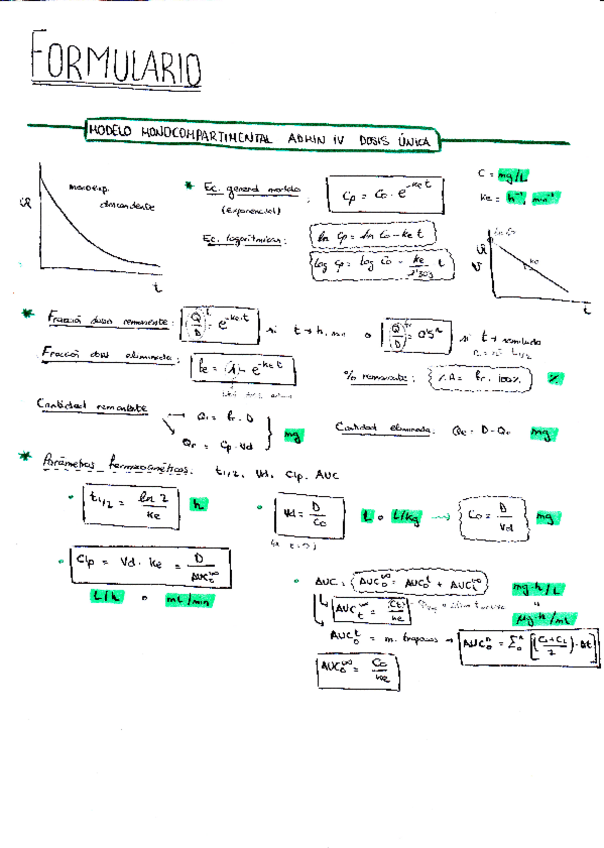 FORMULARIO
MODELO MONOCOMPARTIMENTAL ADMIN IV DOSIS ÚNICA
monoexp. descendente
t
* Ec. general modelo (exponencial): Cp = C0 · e^-ke t
C = mg/L
Ke = h⁻¹, min⁻¹
Ec. logarítmicas: ln Cp = ln C0 - ke t
log Cp = log C0 - ke/2'303 t
ln C0
ke
t
* Fracción dosis remanente: (Q/D)^r = e^-ke·t si t → h, min o (Q/D)^r = 0'5^n si t → semivida
n = nº t1/2
Fracción dosis eliminada: fe = (1) - e^-ke t
% remanente: %A = fr · 100% %
Cantidad remanente → Qr = fr · D
→ Qr = Cp · Vd } mg
Cantidad eliminada: Qe = D - Qr mg
* Parámetros farmacocinéticos: t1/2, Vd, Clp, AUC
• t1/2 = ln 2/ke h
• Vd = D/C0 L o L/kg → C0 = D/Vd mg
• Clp = Vd · ke = D/AUC0^∞
L/h o mL/min
• AUC: AUC0^∞ = AUC0^t + AUCt^∞ mg·h/L
AUCt^∞ = Ct/ke
µg·h/mL
AUC0^t = m. trapecios → AUC0^n = Σ0^n [(C0+C1/2) · Δt]
AUC0^∞ = C0/ke